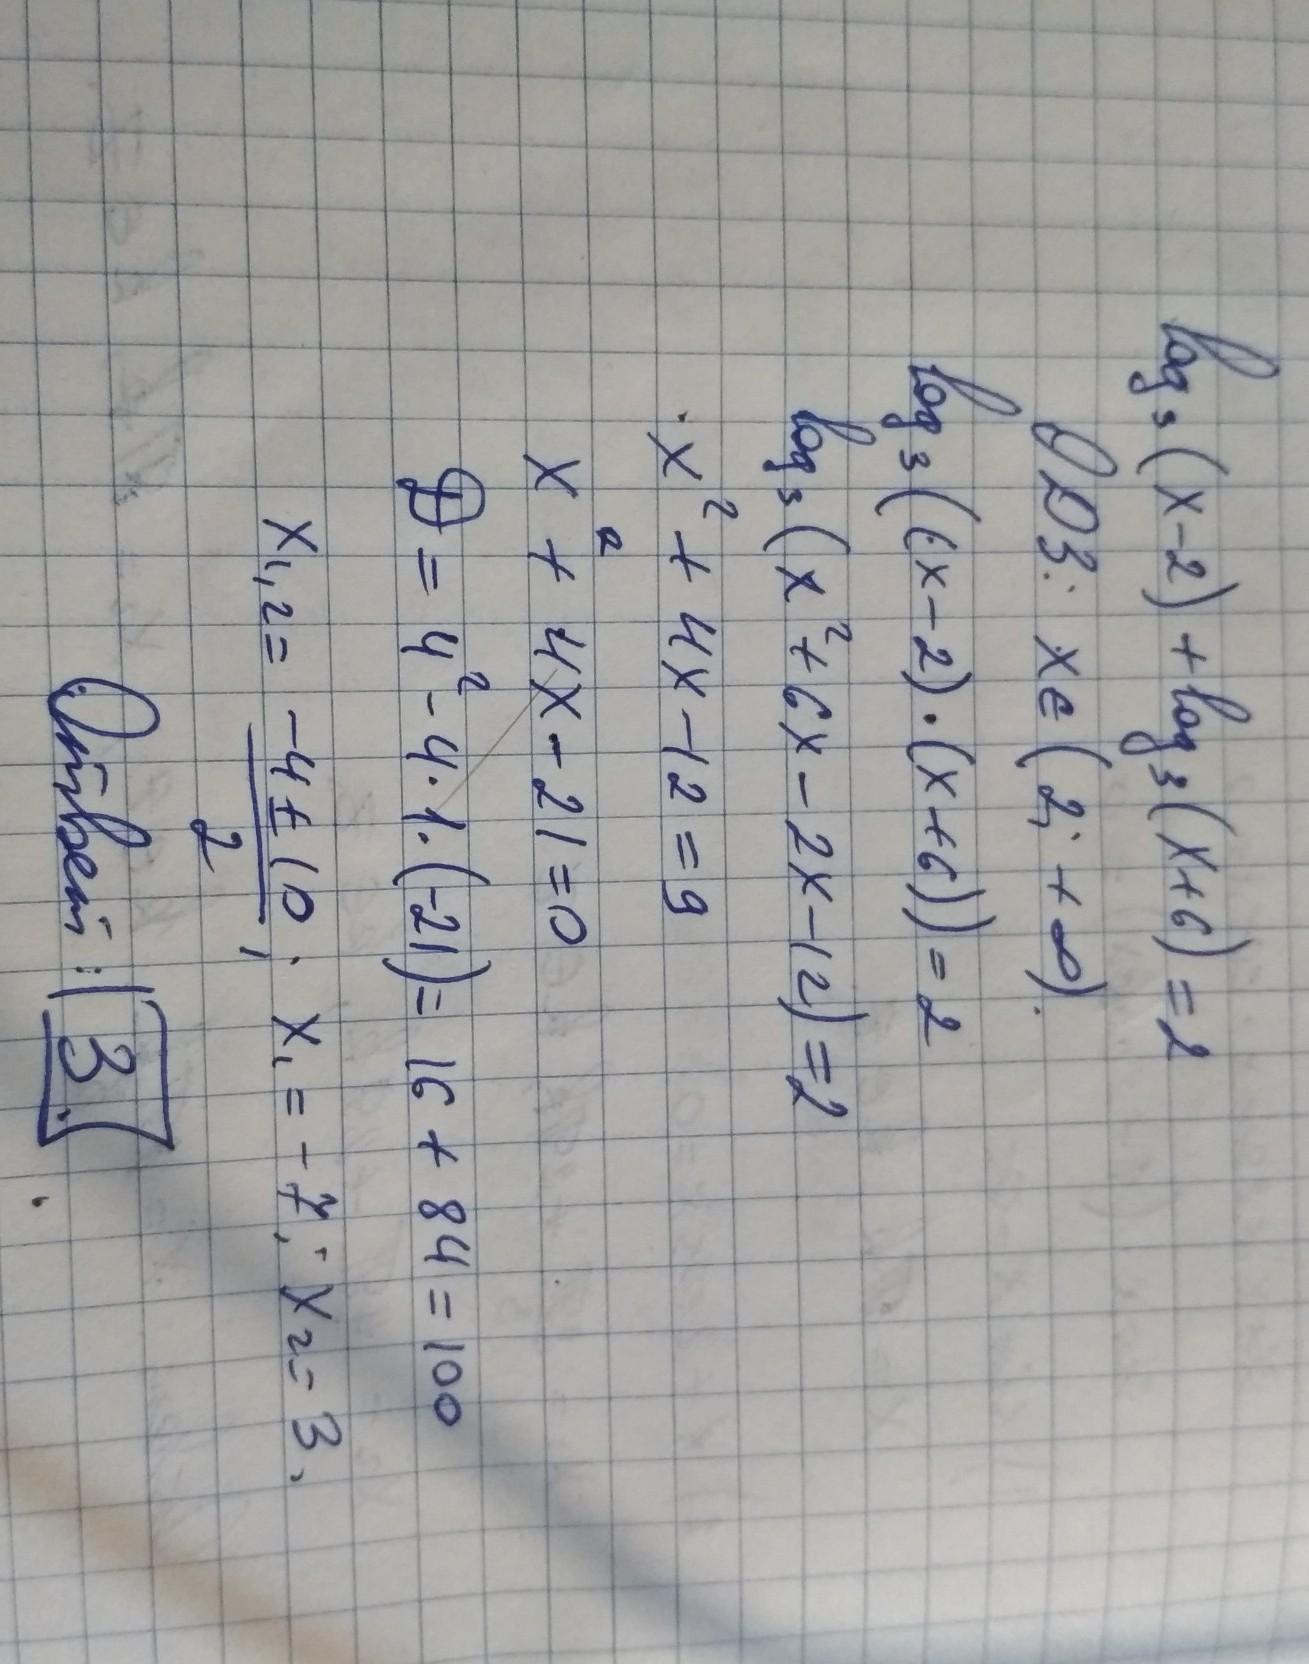 log₃(x-2)+log₃(x+6)=2
ОДЗ: x∈(2; +∞).
log₃((x-2)·(x+6))=2
log₃(x²+6x-2x-12)=2
x²+4x-12=9
x²+4x-21=0
D=4²-4·1·(-21)=16+84=100
x₁,₂= (-4±10)/2; x₁=-7; x₂=3.
Ответ: 3.